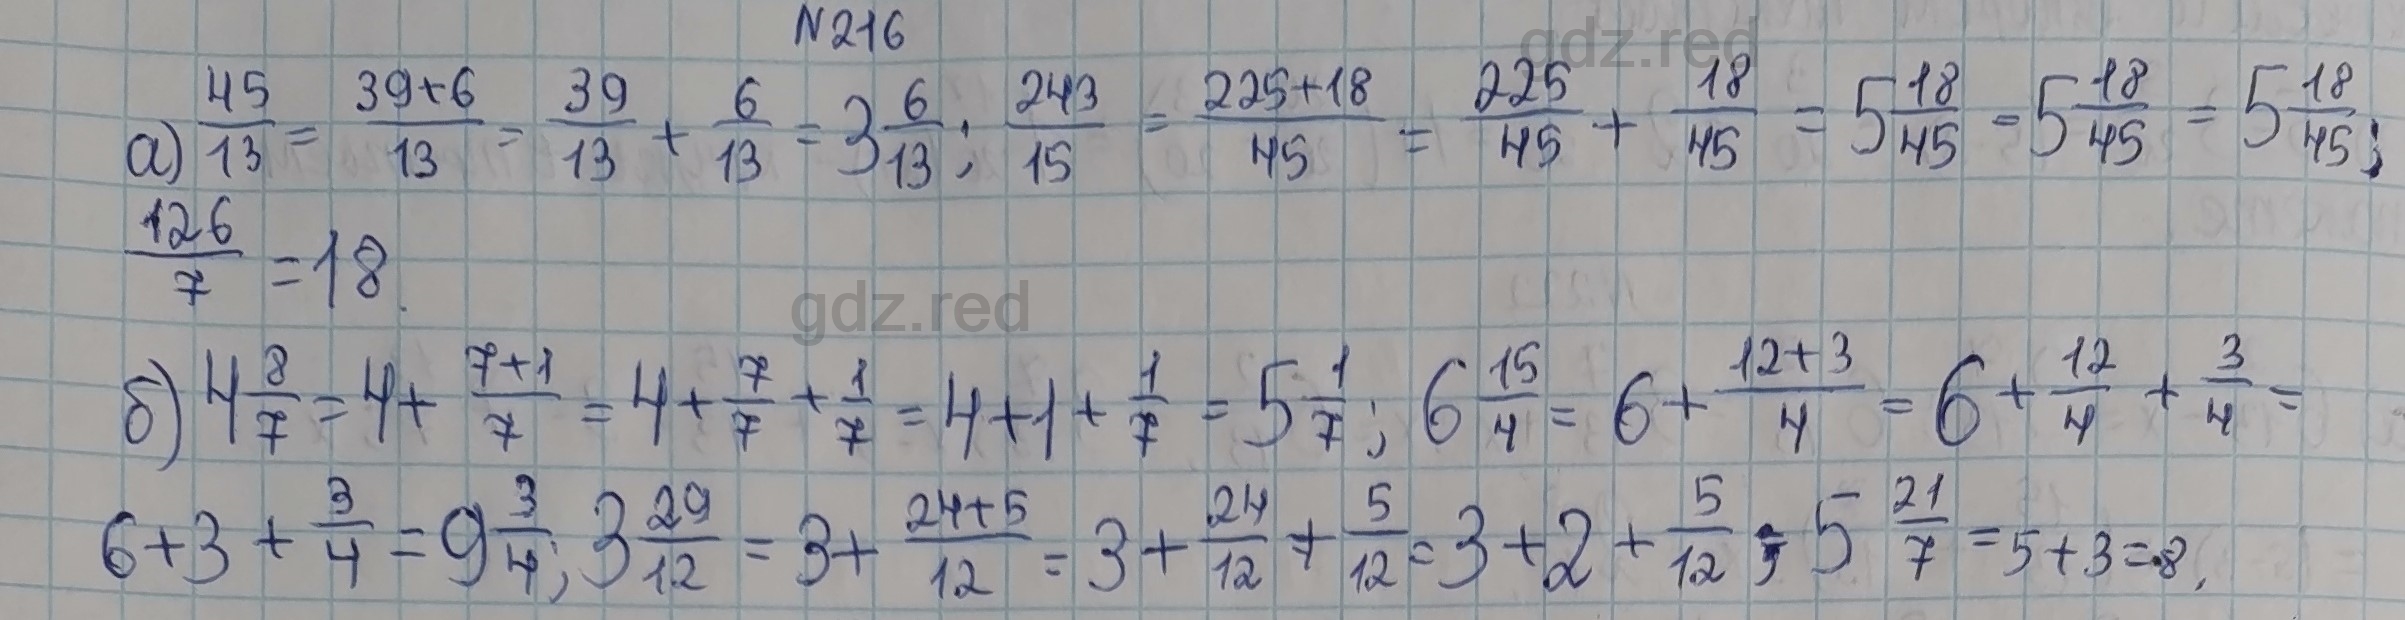 N216
а) 45/13 = 39+6/13 = 39/13 + 6/13 = 3 6/13; 243/15 = 225+18/45 = 225/45 + 18/45 = 5 18/45 = 5 18/45 = 5 18/45;
126/7 = 18.
б) 4 8/7 = 4 + 7+1/7 = 4 + 7/7 + 1/7 = 4+1 + 1/7 = 5 1/7; 6 15/4 = 6 + 12+3/4 = 6 + 12/4 + 3/4 =
6+3 + 3/4 = 9 3/4; 3 29/12 = 3 + 24+5/12 = 3 + 24/12 + 5/12 = 3+2 + 5/12; 5 21/7 = 5+3=8.
gdz.red
gdz.red